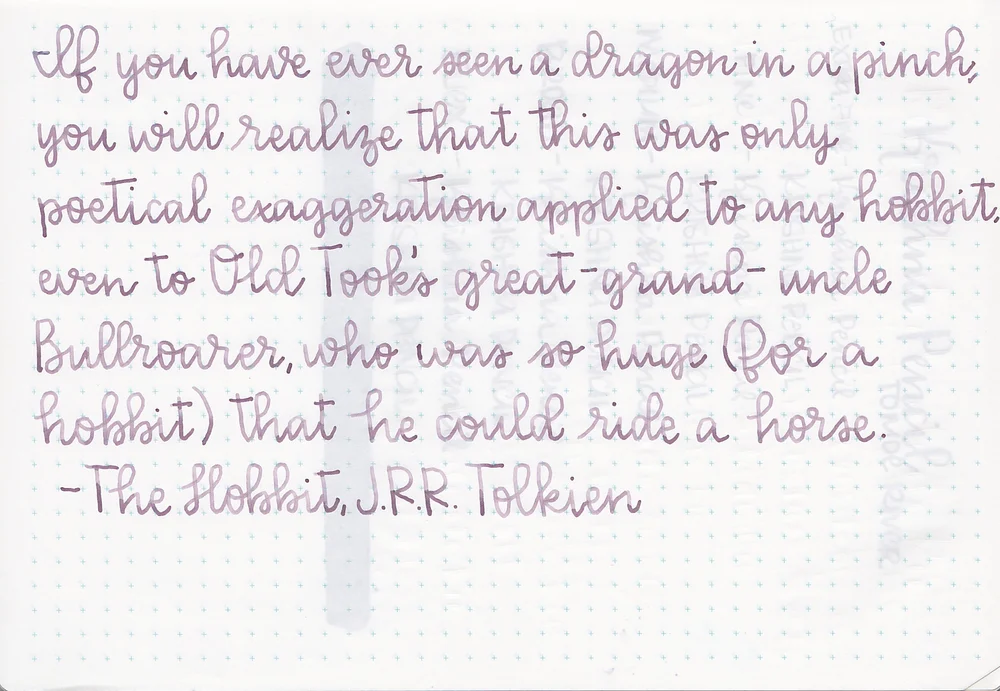 If you have ever seen a dragon in a pinch,
you will realize that this was only
poetical exaggeration applied to any hobbit,
even to Old Took's great-grand-uncle
Bullroarer, who was so huge (for a
hobbit) that he could ride a horse.
-The Hobbit, J.R.R. Tolkien